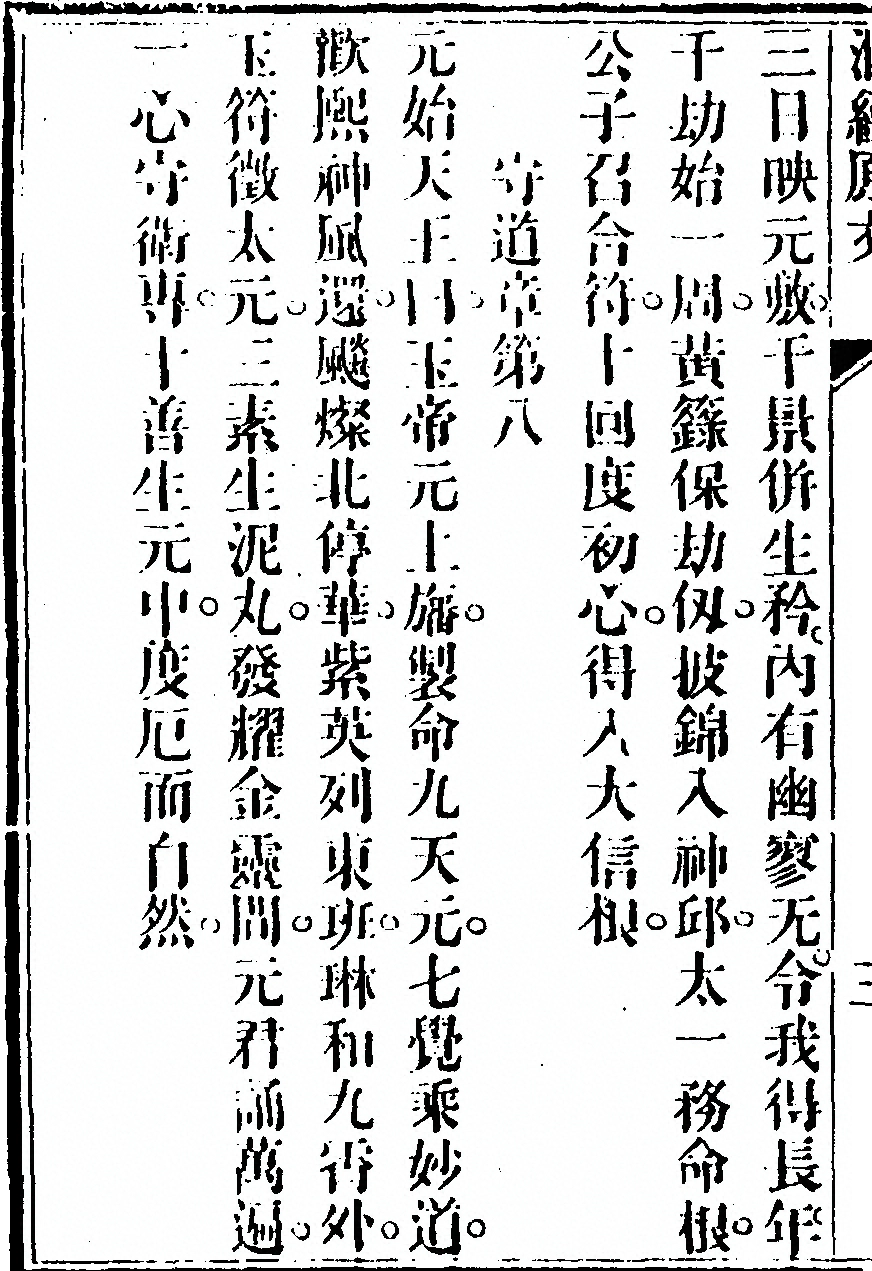 三日映元敷。千景併生矜。內有幽寥无。令我得長年。
千劫始一周。黃籙保劫仭。披錦入神邱。太一務命根。
公子召合符。十回度初心。得入大信根。
守道章第八
元始天王曰。玉帝元上旛。製命九天元。七覺乘妙道。
歡熙神風還。飈燦北停華。紫英列東班。琳和九霄外。
玉符徵太元。三素生泥丸。發耀金靈間。元君誦萬遍。
一心守衛專。十善生元中。度厄而自然。